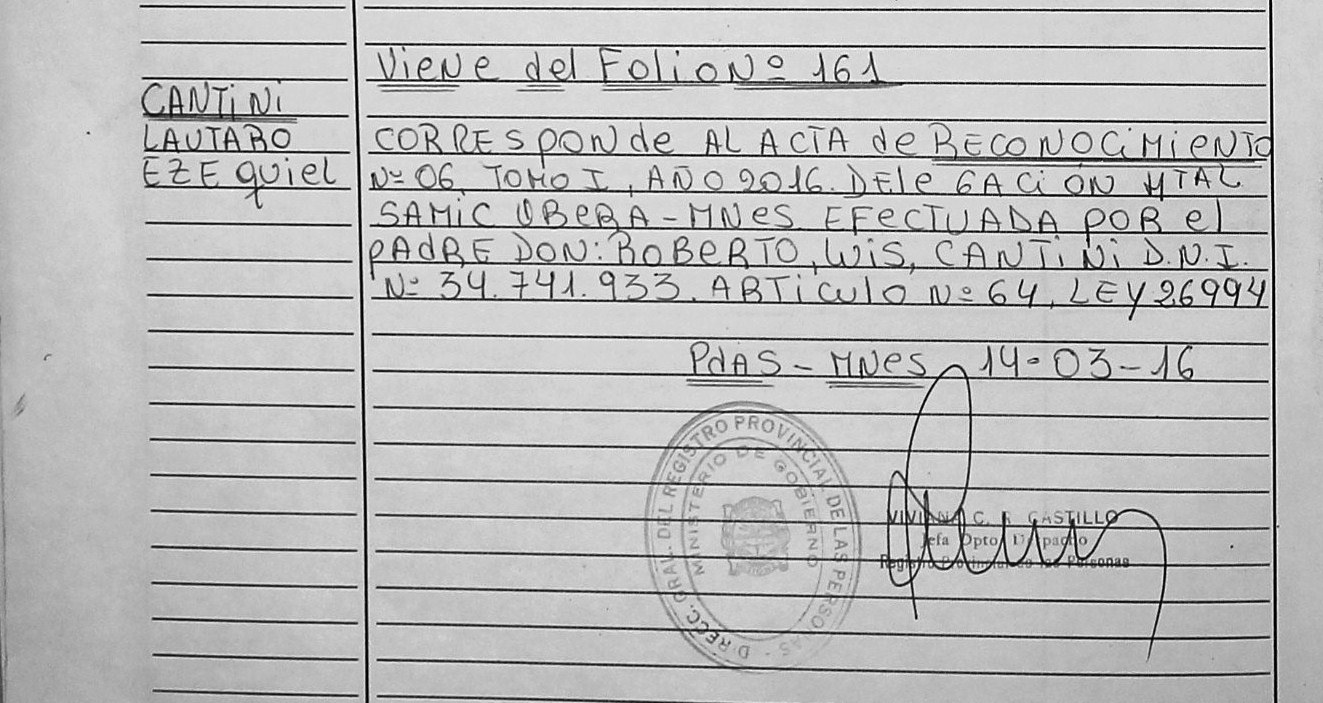 Viene del Folio Nº 161
CANTINI
LAUTARO
EZEquiel
CORRESponde AL ACTA de RECONOCiMieNTO
Nº 06, TOMO I, AÑO 2016. DELeGACiON HTAL
SAMIC OBERA - MNes EFeCTUADA POR el
PAdRE DON: ROBERTO, LUiS, CANTiNi D.N.I.
Nº 34.741.933. ARTiculo Nº 64, LEY 26994
PdAS - MNes 14-03-16
DIRECC. GRAL. DEL REGISTRO PROVINCIAL DE LAS PERSONAS -
MINISTERIO DE GOBIERNO
VIVIANA C. CASTILLO
Jefa Dpto Despacho
Registro Provincial de las Personas